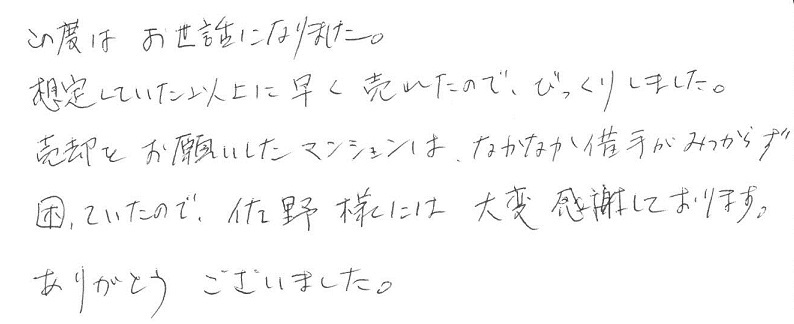 この度は お世話になりました。
想定していた以上に早く売れたので、びっくりしました。
売却をお願いしたマンションは、なかなか借手がみつからず
困っていたので、佐野様には 大変感謝しております。
ありがとう ございました。